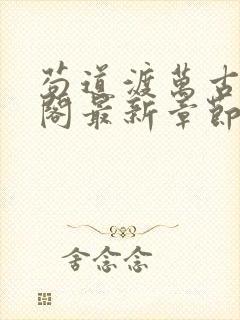 苟道渡萬古
閣最新章節
舍念念